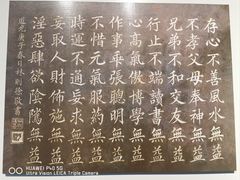 存心不善風水無益
不孝父母奉神無益
兄弟不和交友無益
行止不端讀書無益
心高氣傲博學無益
作事乖張聰明無益
不惜元氣服藥無益
時運不通妄求無益
妄取人財佈施無益
淫惡肆欲陰騭無益
道光庚子春日林則徐敬書
HUAWEI P40 5G
Ultra Vision LEICA Triple Camera